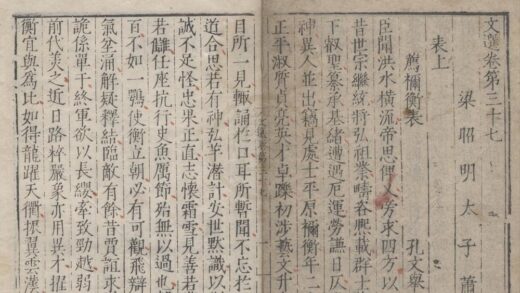 文選卷第三十七
梁昭明太子蕭
表上
薦禰衡表 孔文舉
臣聞洪水橫流帝思俾乂旁求四方以
昔世宗繼統將弘祖業疇咨熙載群士
下叡聖纂承基緒遭遇厄運勞謙日仄
神異人並出竊見處士平原禰衡年二
正平淑質貞亮英才卓躒初涉藝文升
目所一見輒誦於口耳所暫聞不忘於
道合思若有神弘羊潛計安世默識以
誠不足怪忠果正直志懷霜雪見善若
若讎任座抗行史魚厲節殆無以過也
百不如一鶚使衡立朝必有可觀飛辯
氣坌涌解疑釋結臨敵有餘昔賈誼求
詭係單于終軍欲以長纓牽致勁越弱
前代美之近日路粹嚴象亦用異才擢
衡宜與為比如得龍躍天衢振翼雲漢